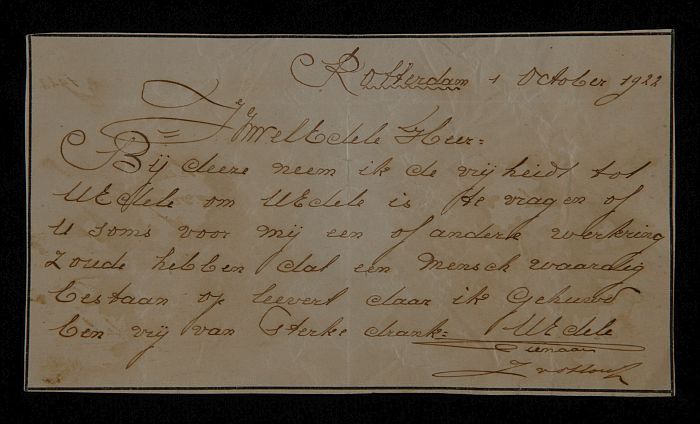 Rotterdam 1 October 1922
WelEdele Heer=
Bij deeze neem ik de vrijheidt tot
UEdele om UEdele is te vragen of
U soms voor mij een of andere werkring
Zoude hebben dat een Mensch waardig
bestaan op leevert daar ik Gehuwd
ben vrij van Sterke drank= UEdele
Dienaar